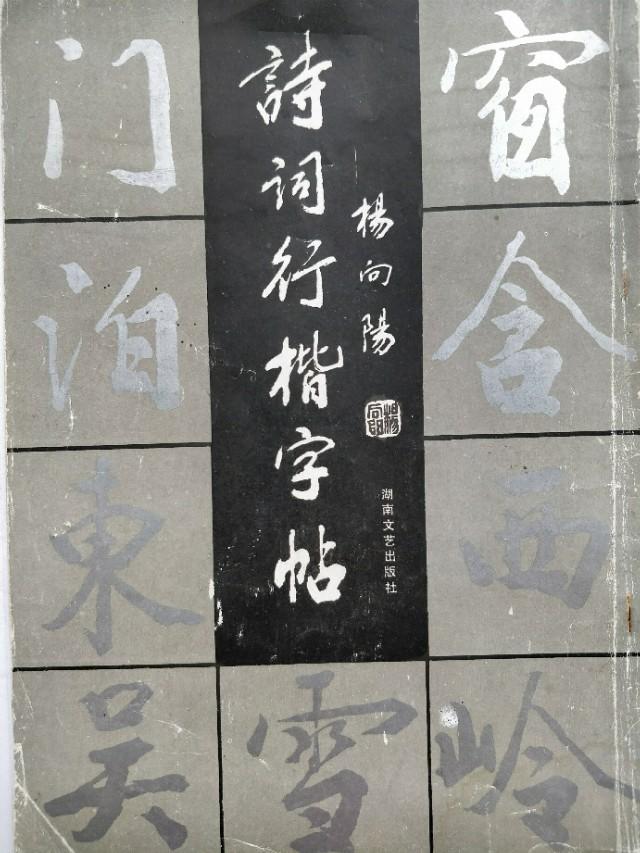 窗含西岭
雪
詩词行楷字帖
楊向陽
湖南文艺出版社
门泊東吴